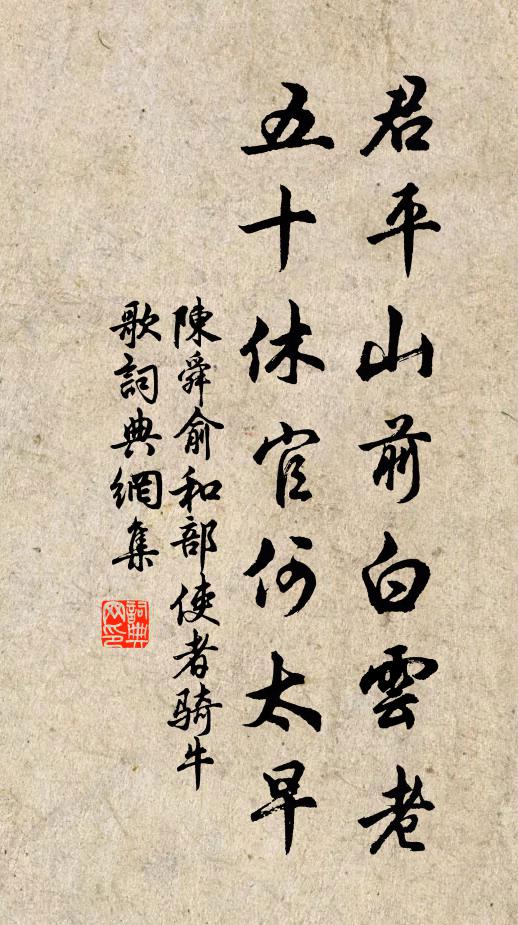 君平山前白雲老
五十休官何太早
陳舜俞和部使者騎牛
歌詞典網集
詞典网印